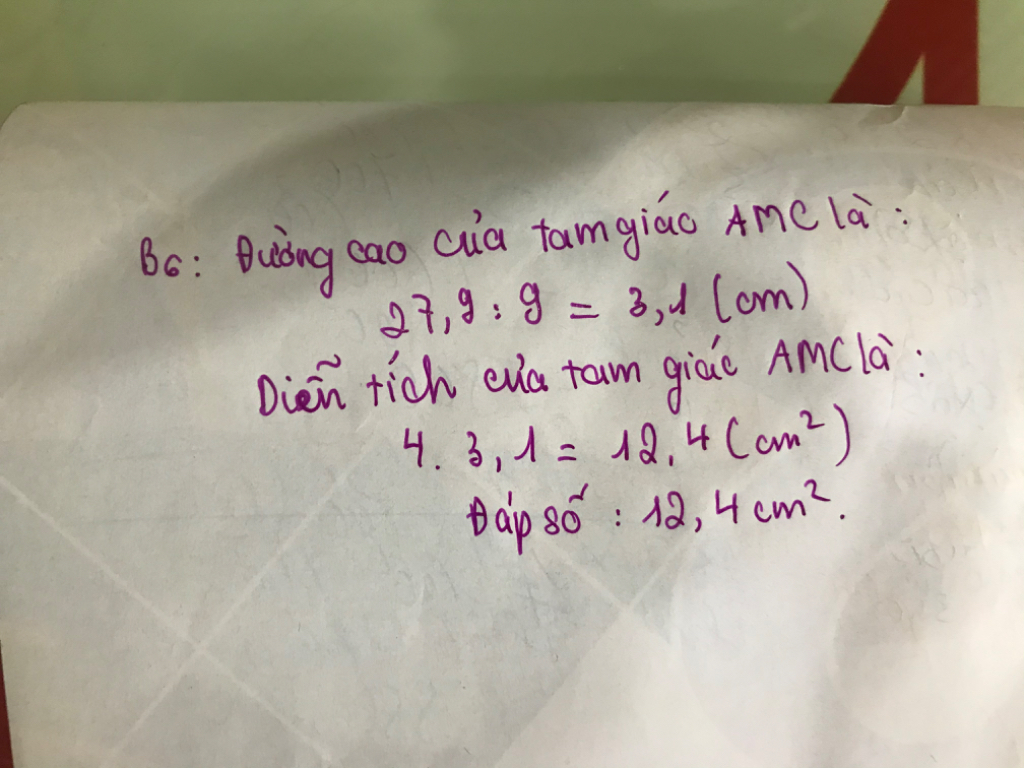 B6: Đường cao của tam giác AMC là:
27,9 : 9 = 3,1 (cm)
Diễn tích của tam giác AMC là:
4. 3,1 = 12,4 (cm²)
Đáp số : 12,4 cm².